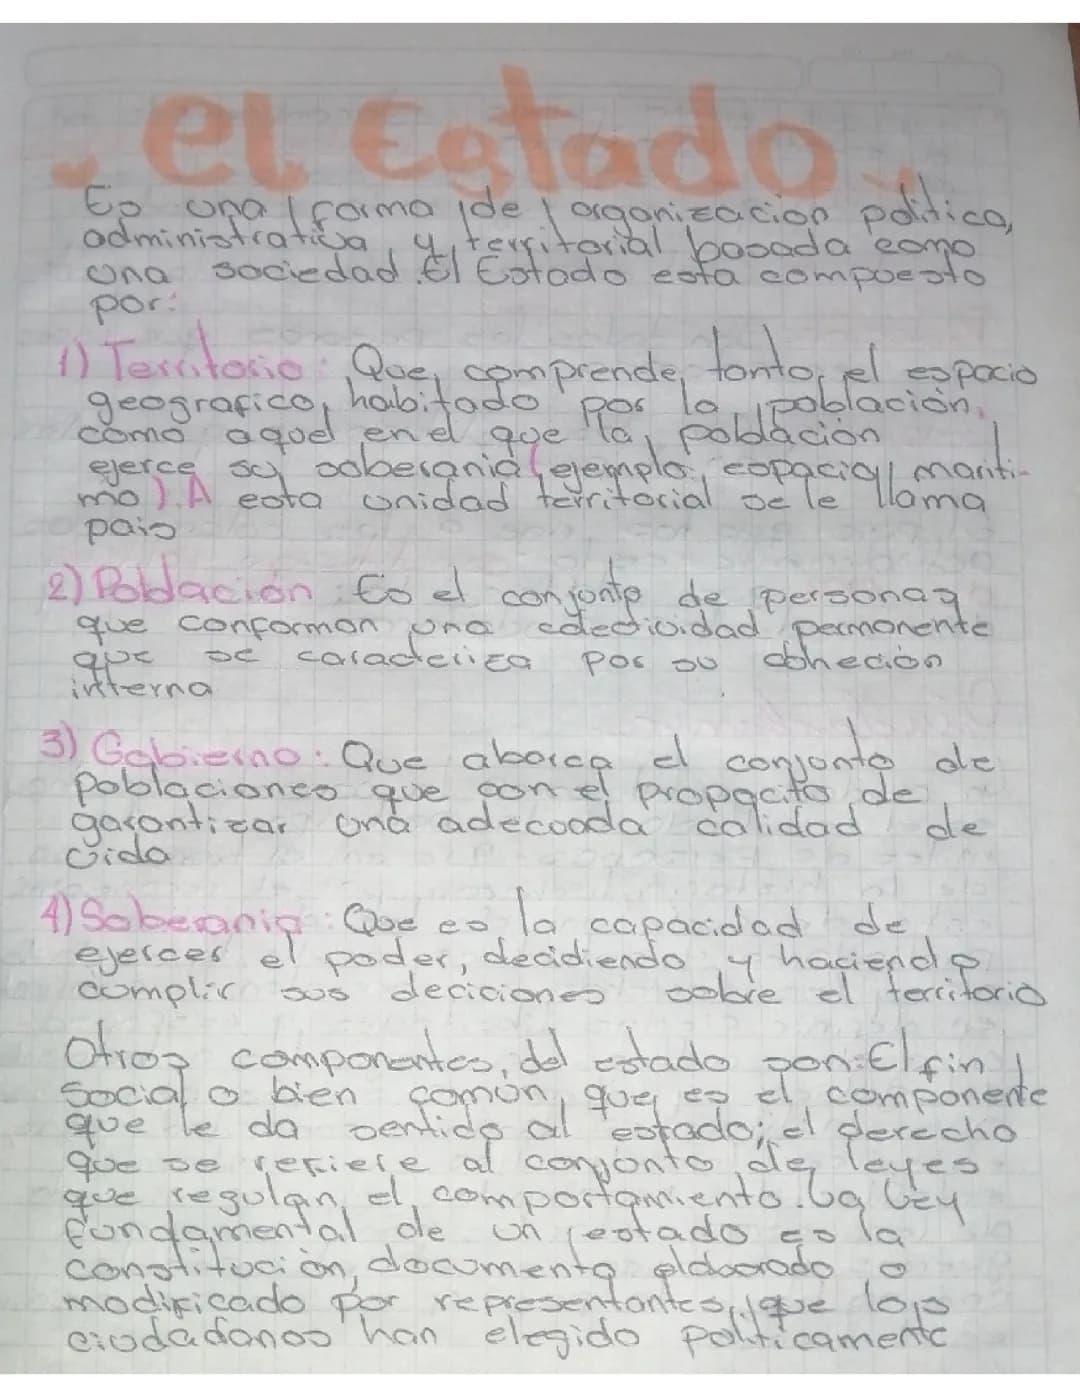 el Estado
Es una forma de organizacion politica,
administrativa, y territorial basada como
una sociedad. El Estado esta compuesto
por:
1) Territorio: Que, comprende, tanto, el espacio
geografico, habitado por la población,
como aquel en el que la, población
ejerce su soberania (ejemplo, espacial, mariti-
mo). A esta unidad territorial se le llama
pais
2) Población: Es el conjunto de personas
que conforman una colectividad permanente
que se caracteriza por su cohecion
interna
3) Gobierno: Que aborca el conjunto de
poblaciones que con el propocito de
garantizar una adecuada calidad de
vida
4) Soberania: Que es la capacidad de
ejercer el poder, decidiendo y haciendo
cumplir sus deciciones sobre el territorio
Otros componentes, del estado son: El fin
Social o bien común, que, es el componente
que le da sentido al estado; el derecho
que se refiere al conjunto de leyes
que regulan, el comportamiento. La Ley
fundamental de un estado es la
constitución, documento eldaorado o
modificado por representantes, que los
ciudadanos han elegido politicamente